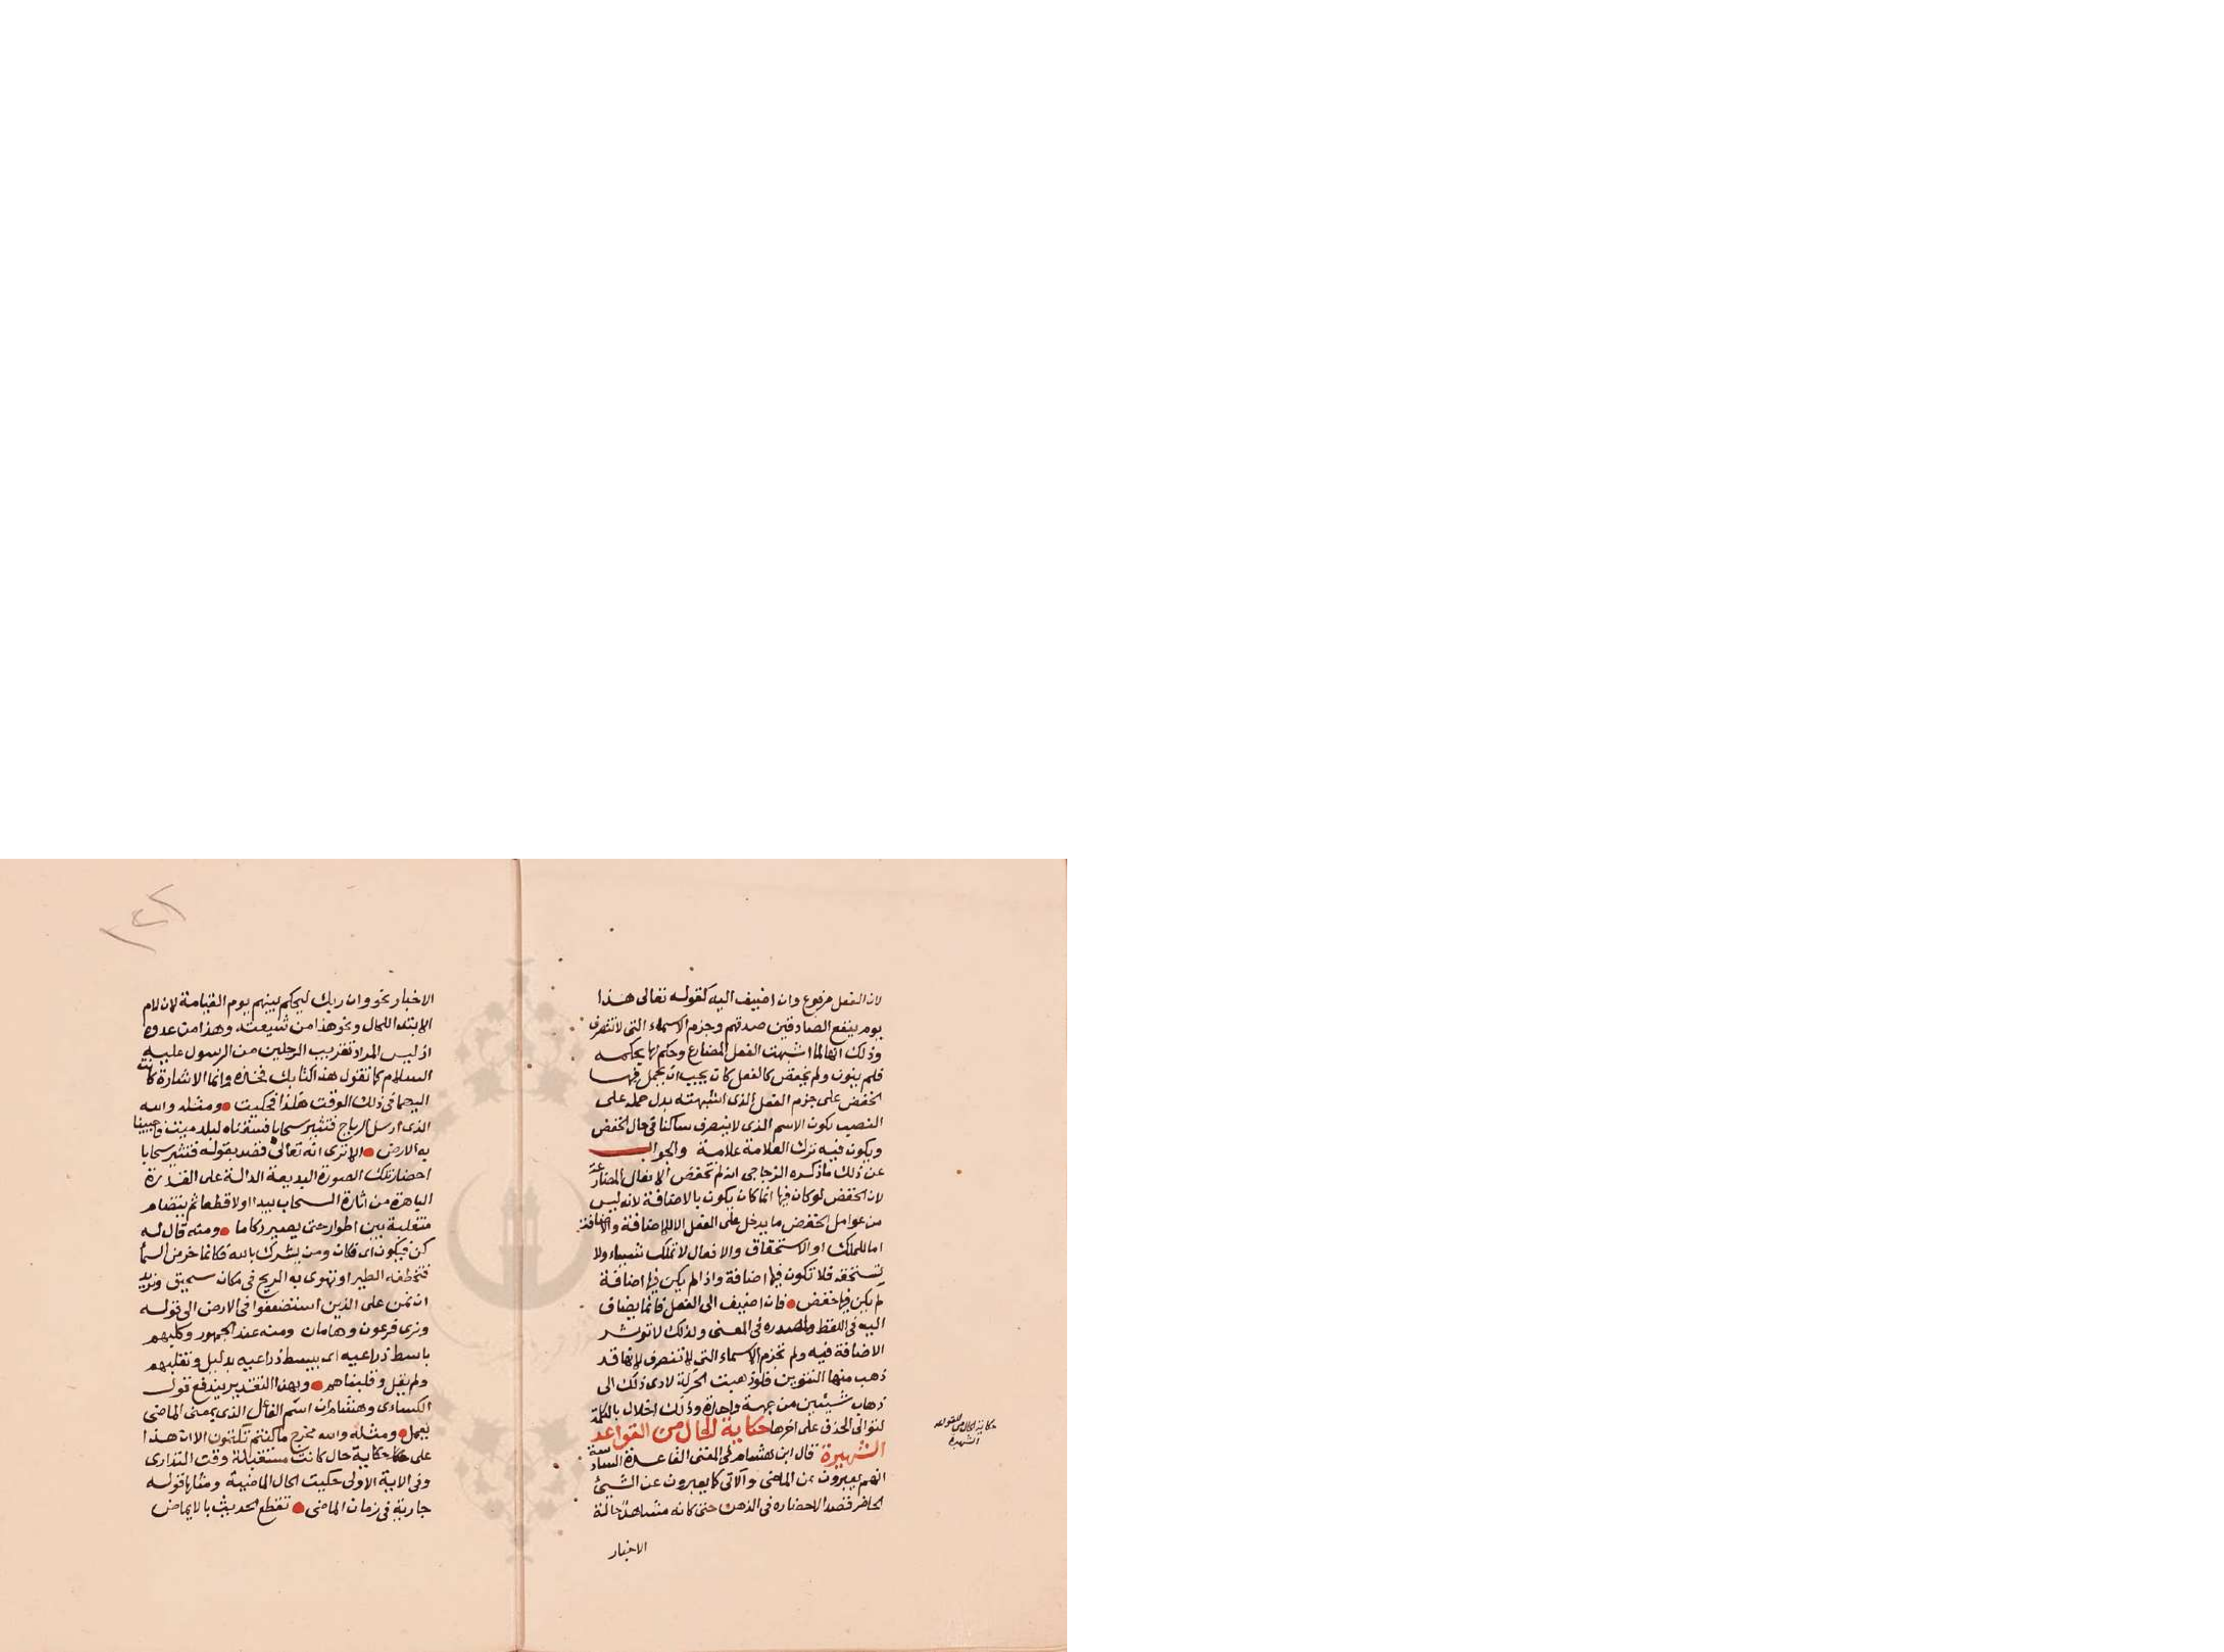 لان الفعل مرفوع وان اضيف اليه كقوله تعالى هذا
يوم ينفع الصادقين صدقهم وجزم الاسماء التى لا تنصرف
وذلك انها لما اشبهت الفعل المضارع وحكم لها بحكمه
فلم ينون ولم يخفض كالفعل كان يجب ان يحمل فيها
الخفض على جزم الفعل الذى اشبهته بدل حمله على
النصب يكون الاسم الذى لا ينصرف ساكنا فى حال الخفض
ويكون فيه ترك العلامة علامة والجواب
عن ذلك ما ذكره الزجاجى انه لم تخفض الافعال المضارعة
لان الخفض لو كان فيها انما كان يكون بالاضافة لانه ليس
من عوامل الخفض ما يدخل على الفعل الا للاضافة والاضافة
اما للملك او الاستحقاق والافعال لا تملك شيئا ولا
تستحقه فلا تكون فيها اضافة واذا لم يكن فيها اضافة
لم يكن فيها خفض فان اضيف الى الفعل فانما يضاف
اليه فى اللفظ ولمصدره فى المعنى ولذلك لا توثر
الاضافة فيه ولم تجزم الاسماء التى لا تنصرف لانها قد
ذهب منها التنوين فلو ذهبت الحركة لادى ذلك الى
ذهاب شيئين من جهة واحدة وذلك اخلال بالكلمة
لتوالى الحذف على اخرها حكاية الحال من القواعد
الشهيرة قال ابن هشام فى المغنى القاعدة السادسة
انهم يعبرون عن الماضى والآتى كما يعبرون عن الشيئ
الحاضر قصد الاحضاره فى الذهن حتى كانه مشاهد حالة
الاخبار
حكاية الحال من القواعد
الشهيرة
الاخبار نحو وان ربك ليحكم بينهم يوم القيامة لان لام
الابتدا للحال ونحو هذا من شيعته وهذا من عدوه
اذ ليس المراد تقريب الرجلين من الرسول عليه
السلام كما تقول هذا كتابك فخذه وانما الاشارة كانت
اليهما فى ذلك الوقت هكذا فحكيت ومثله والله
الذى ارسل الرياح فتثير سحابا فسقناه لبلد ميت فاحيينا
به الارض الا ترى انه تعالى قصد بقوله فتثير سحابا
احضار تلك الصورة البديعة الدالة على القدرة
الباهرة من اثارة السحاب يبدا اولا قطعا ثم يتضام
متقلبة بين اطوار حتى يصير ركاما ومنه قال له
كن فيكون اى فكان ومن يشرك بالله فكانما خر من السما
فتخطفه الطير او تهوى به الريح فى مكان سحيق ونريد
ان نمن على الذين استضعفوا فى الارض الى قوله
ونرى فرعون وهامان ومنه عند الجمهور وكلبهم
باسط ذراعيه اى يبسط ذراعيه بدليل ونقلبهم
ولم يقل وقلبناهم وبهذا التقدير يندفع قول
الكسائى وهشام ان اسم الفاعل الذى بمعنى الماضى
يعمل ومثله والله مخرج ما كنتم تكتمون الا ان هذا
على حكاية حال كانت مستقبلة وقت التدارى
وفى الاية الاولى حكيت الحال الماضية ومثلها قوله
جارية فى زمان الماضى تقطع الحديث بالايماض